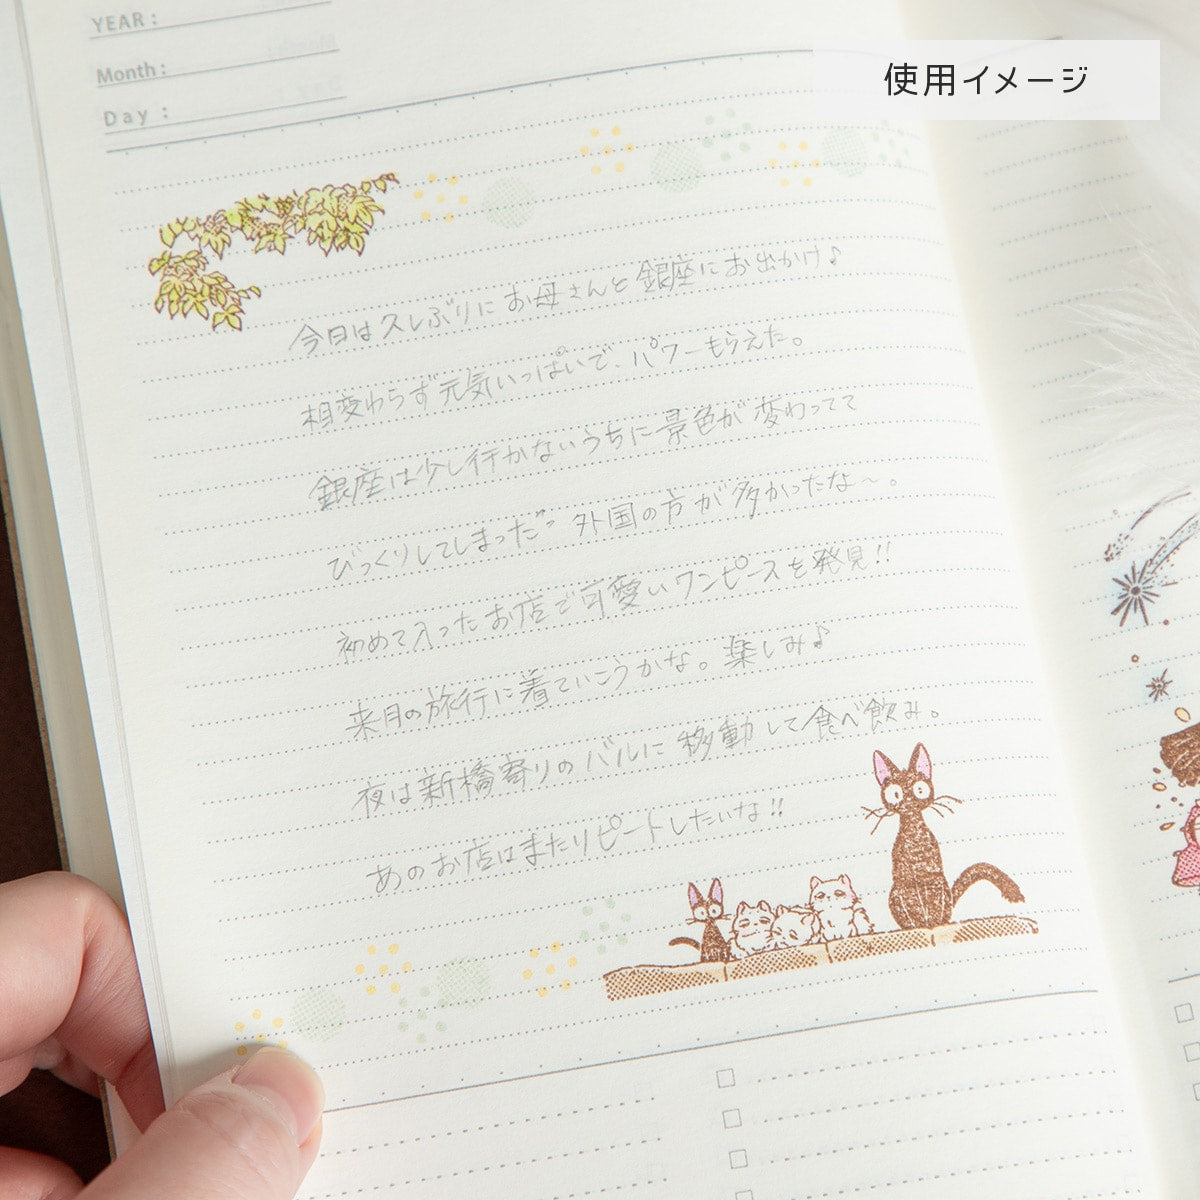 使用イメージ
YEAR :
Month :
Day :
今日は久しぶりにお母さんと銀座にお出かけ♪
相変わらず元気いっぱいで、パワーもらえた。
銀座は少し行かないうちに景色が変わってて
びっくりしてしまった〃 外国の方が多かったな〜。
初めて入ったお店で可愛いワンピースを発見!!
来月の旅行に着ていこうかな。楽しみ♪
夜は新橋寄りのバルに移動して食べ飲み。
あのお店はまたリピートしたいな!!